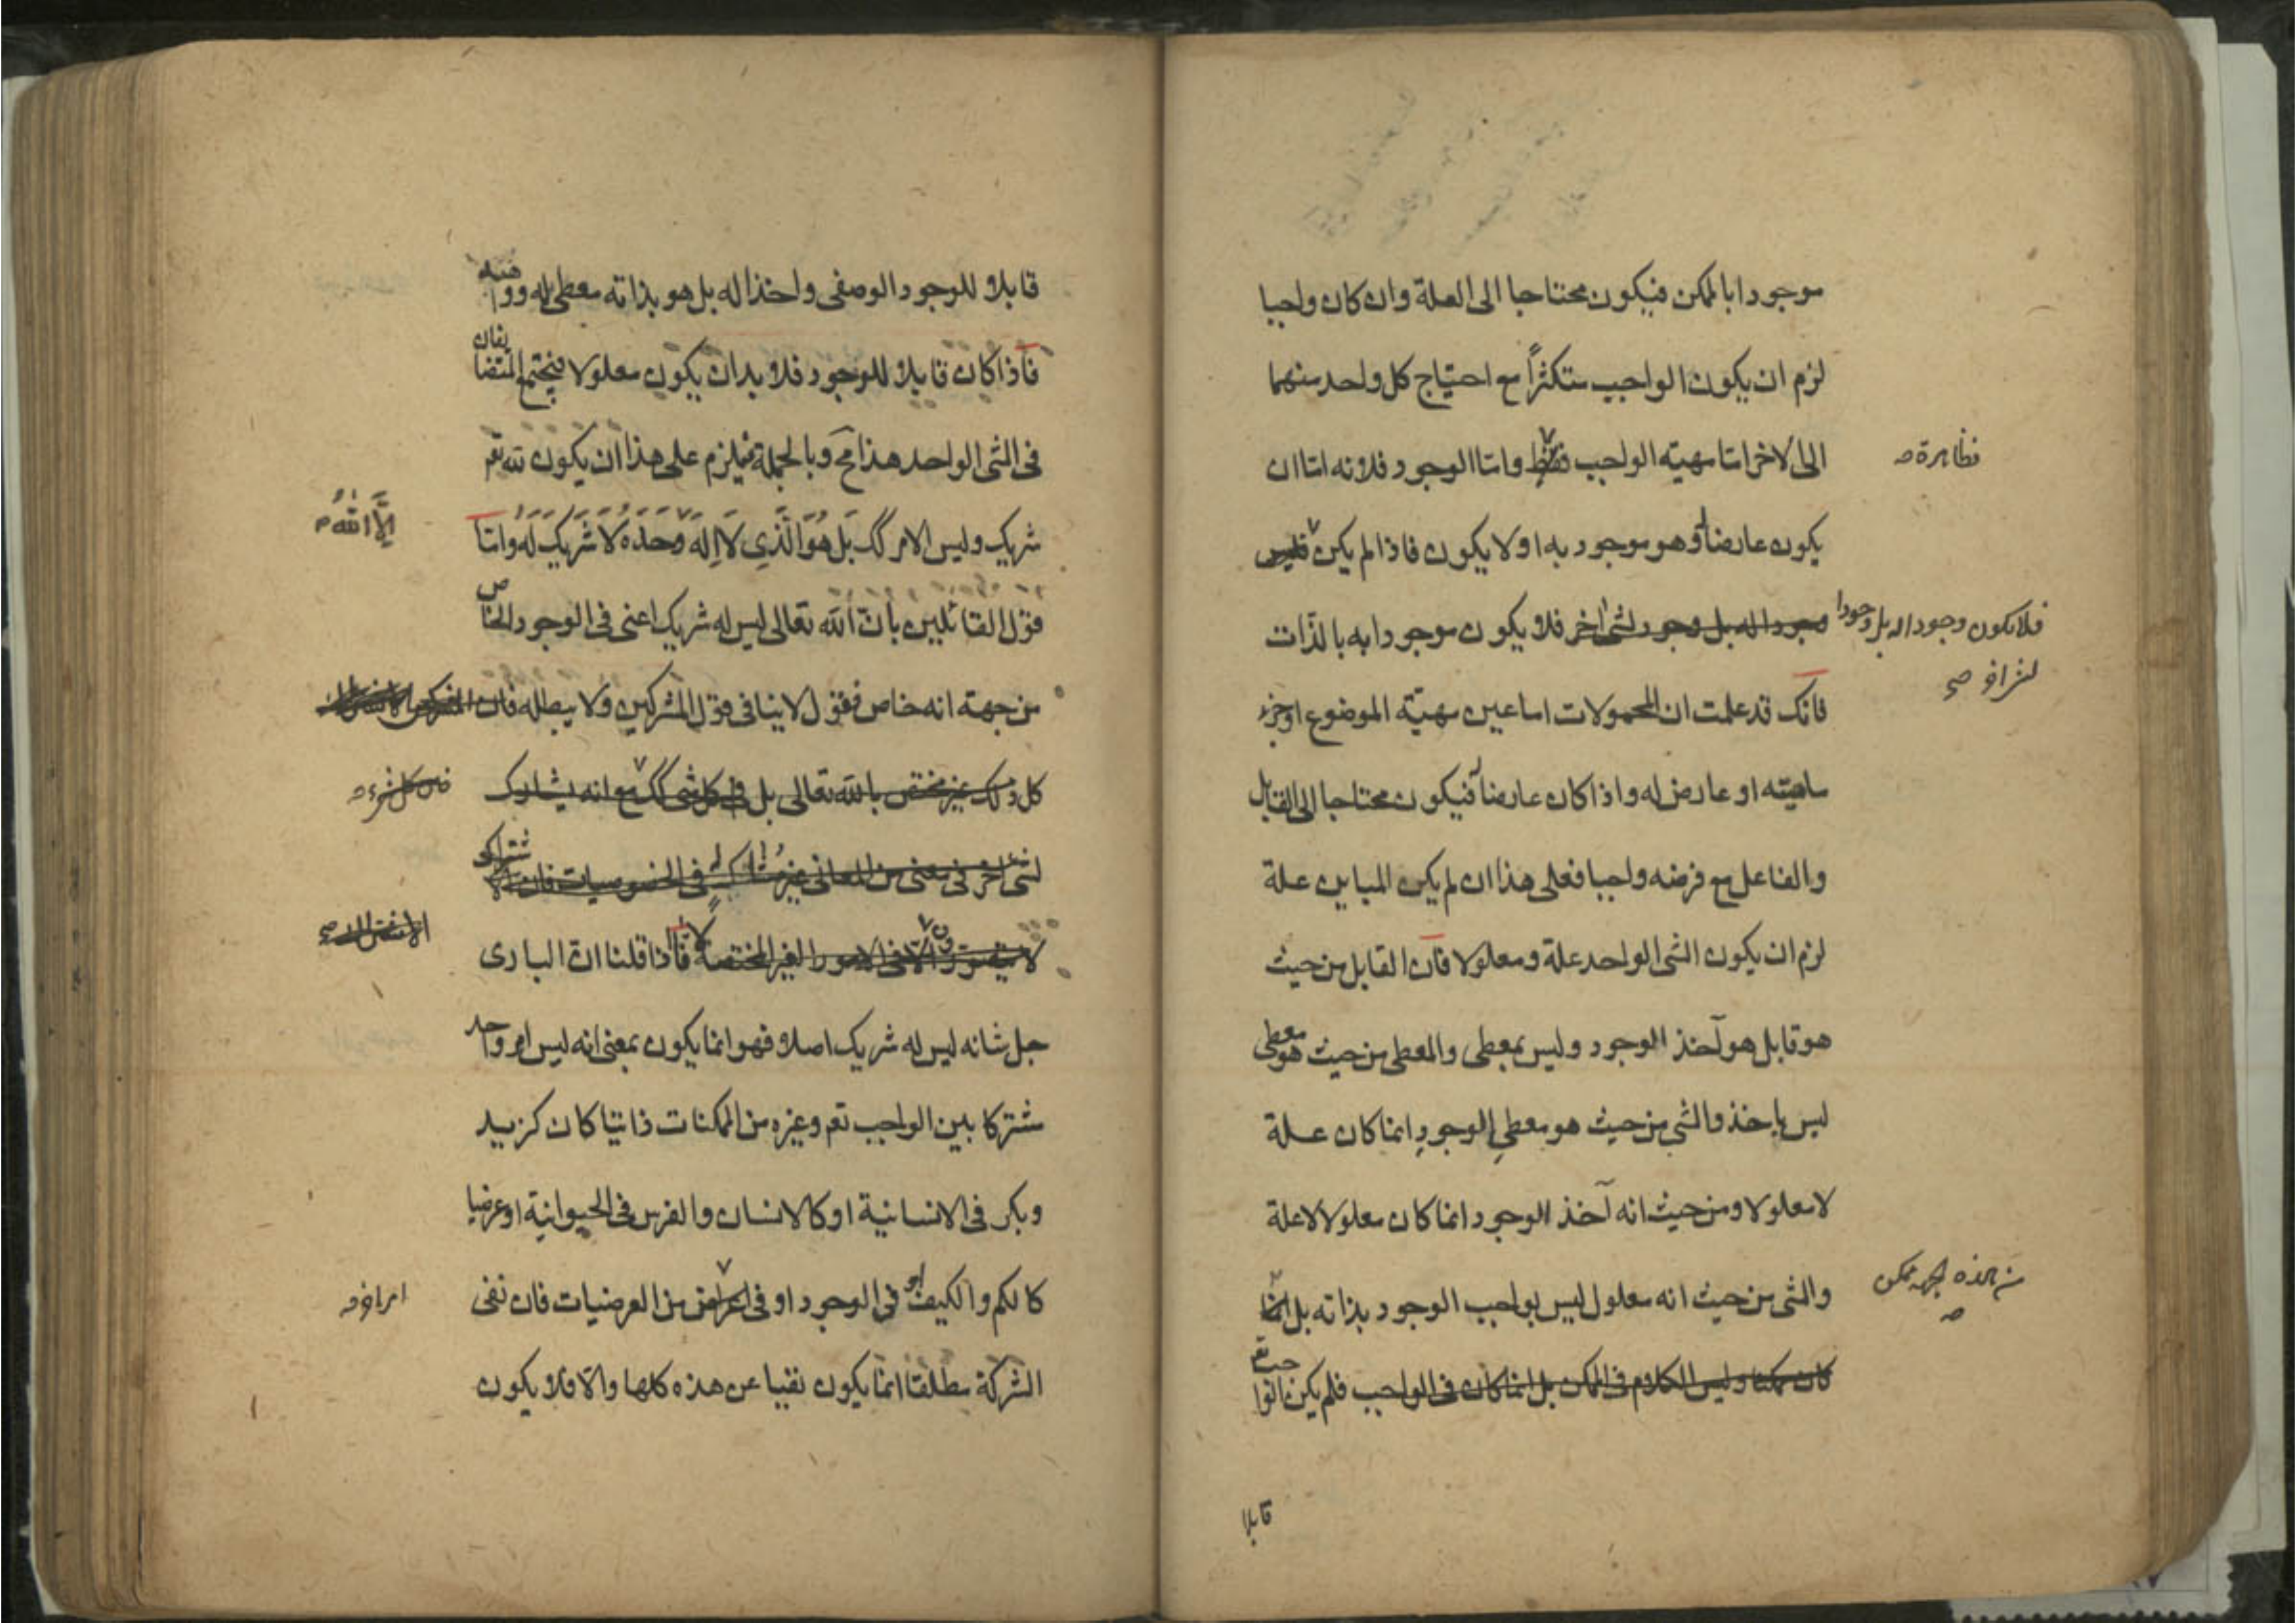 موجودا بالممكن فيكون محتاجا الى العلة وان كان واجبا
لزم ان يكون الواجب متكثراً مع احتياج كل واحد منهما
الى الاخر اما مهية الواجب فقط واما الوجود فلانه اما ان
فظاهرة صح
يكون عارضا له وهو موجود به او لا يكون فاذا لم يكن فليس
وجودا له بل وجود لشئ اخر فلا يكون موجودا به بالذات
فلا يكون وجودا له بل وجودا
لشئ اخر صح
فانك قد علمت ان المحمولات اما عين مهيّة الموضوع او جزء
ماهيته او عارض له واذا كان عارضا فيكون محتاجا الى القابل
والفاعل مع فرضه واجبا فعلى هذا ان لم يكن المباين علة
لزم ان يكون الشئ الواحد علة ومعلولا فان القابل من حيث
هو قابل هو آخذ الوجود وليس بمعطى والمعطى من حيث هو معطى
ليس باخذ والشئ من حيث هو معطي الوجود انما كان علة
لا معلولا ومن حيث انه آخذ الوجود انما كان معلولا لا علة
والشئ من حيث انه معلول ليس بواجب الوجود بذاته بل انما
من هذه الجهة ممكن
صح
كان ممكنا وليس الكلام فى الممكن بل انما كان فى الواجب فلم يكن الواجب تع
قابلا
قابلا للوجود الوصفى واخذا له بل هو بذاته معطى له وواهبه
فاذا كان قابلا للوجود فلا بد ان يكون معلولا فيجتمع المتضايفان
فى الشئ الواحد هذا مح وبالجملة فيلزم على هذا ان يكون لله تعم
شريك وليس الامر كك بَل هُوَ الَّذِى لاَ اِلهَ وَحدَهُ لاَ شَرِيكَ لَهُ واما
اِلَّا اللهُ
قول القائلين بانّ الله تعالى ليس له شريك اعنى فى الوجود الخاص
من جهة انه خاص فقول لا ينافى قول المشركين ولا يبطله فان
كل ذلك غير مختص بالله تعالى بل فى كل شئ كك مع انه يشارك
فى كل شئ صح
لشئ اخر فى معنى من المعانى غير مشارك له فى الخصوصيات فان الاشتراك
لا يتصور الا فى الامور الغير المختصة فاذا قلنا ان البارى
جل شانه ليس له شريك اصلا فهو انما يكون بمعنى انه ليس امر واحد
مشتركا بين الواجب تعم وغيره من الممكنات ذاتيا كان كزيد
وبكر فى الانسانية او كالانسان والفرس فى الحيوانية او عرضيا
كالكم والكيف فى الوجود او فى اعراض من العرضيات فان نفى
امر اخر صح
الشركة مطلقا انما يكون نفيا عن هذه كلها والا فلا يكون